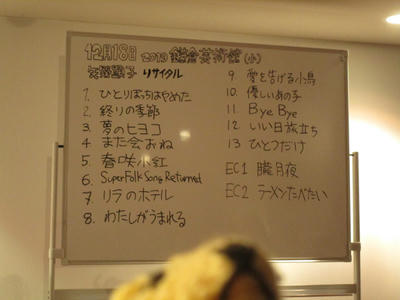 12月18日 2013 鎌倉芸術館(小)
矢野顕子 リサイタル
1. ひとりぼっちはやめた
2. 終りの季節
3. 夢のヒヨコ
4. また会おね
5. 春咲小紅
6. SuperFolk Song Returned
7. リラのホテル
8. わたしがうまれる
9 愛を告げる小鳥
10. 優しいあの子
11. Bye Bye
12 いい日旅立ち
13 ひとつだけ
EC1 朧月夜
EC2 ラーメンたべたい